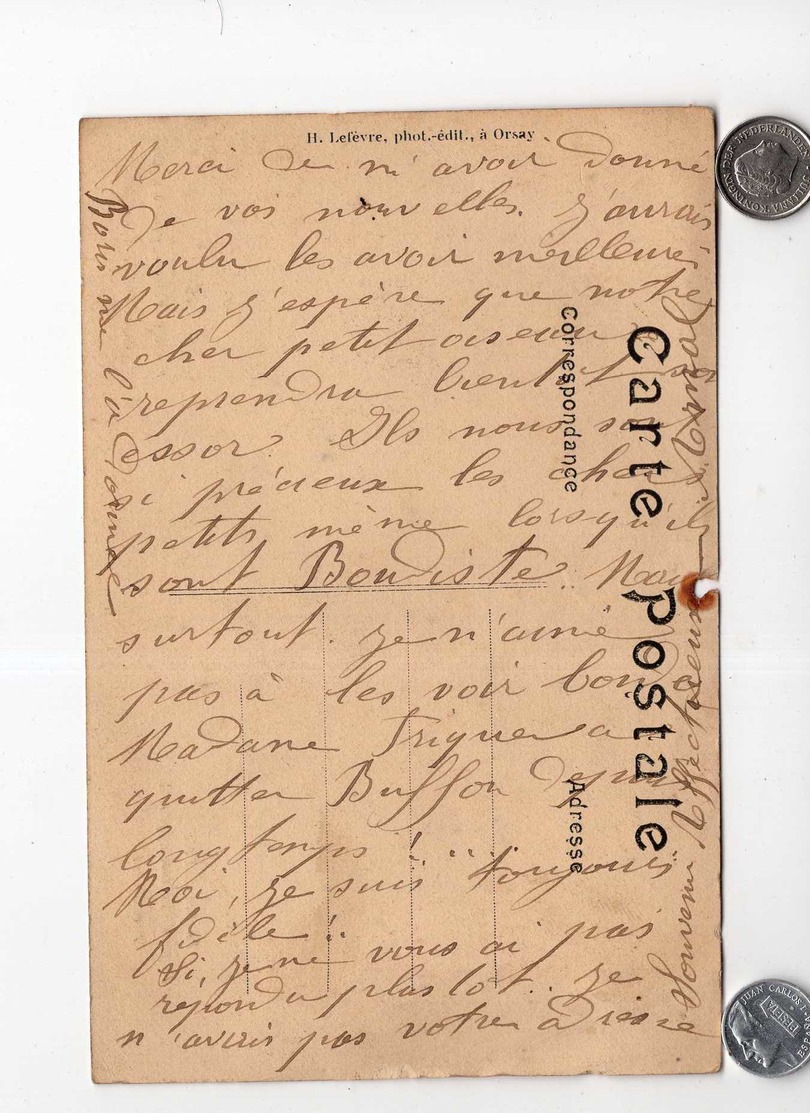 H. Lefèvre, phot.-édit., à Orsay
Merci de m'avoir donné
de vos nouvelles. J'aurais
voulu les avoir meilleures
Mais j'espère que notre
cher petit oiseau
reprendra bientôt son
essor. Ils nous sont
si précieux les chers
petits même lorsqu'ils
sont Boudiste. Mais
surtout je n'aime
pas à les voir
Madame a
quitter Buffon depuis
longtemps !...
Moi, je suis toujours
fidèle !..
Si je ne vous ai pas
répondu plus tôt. je
n'avais pas votre adresse
me l'a donnée
Souvenir Affectueux
Carte Postale
Correspondance
Adresse
JULIANA KONINGIN DER NEDERLANDEN
JUAN CARLOS I
PESETA
ESPAÑA